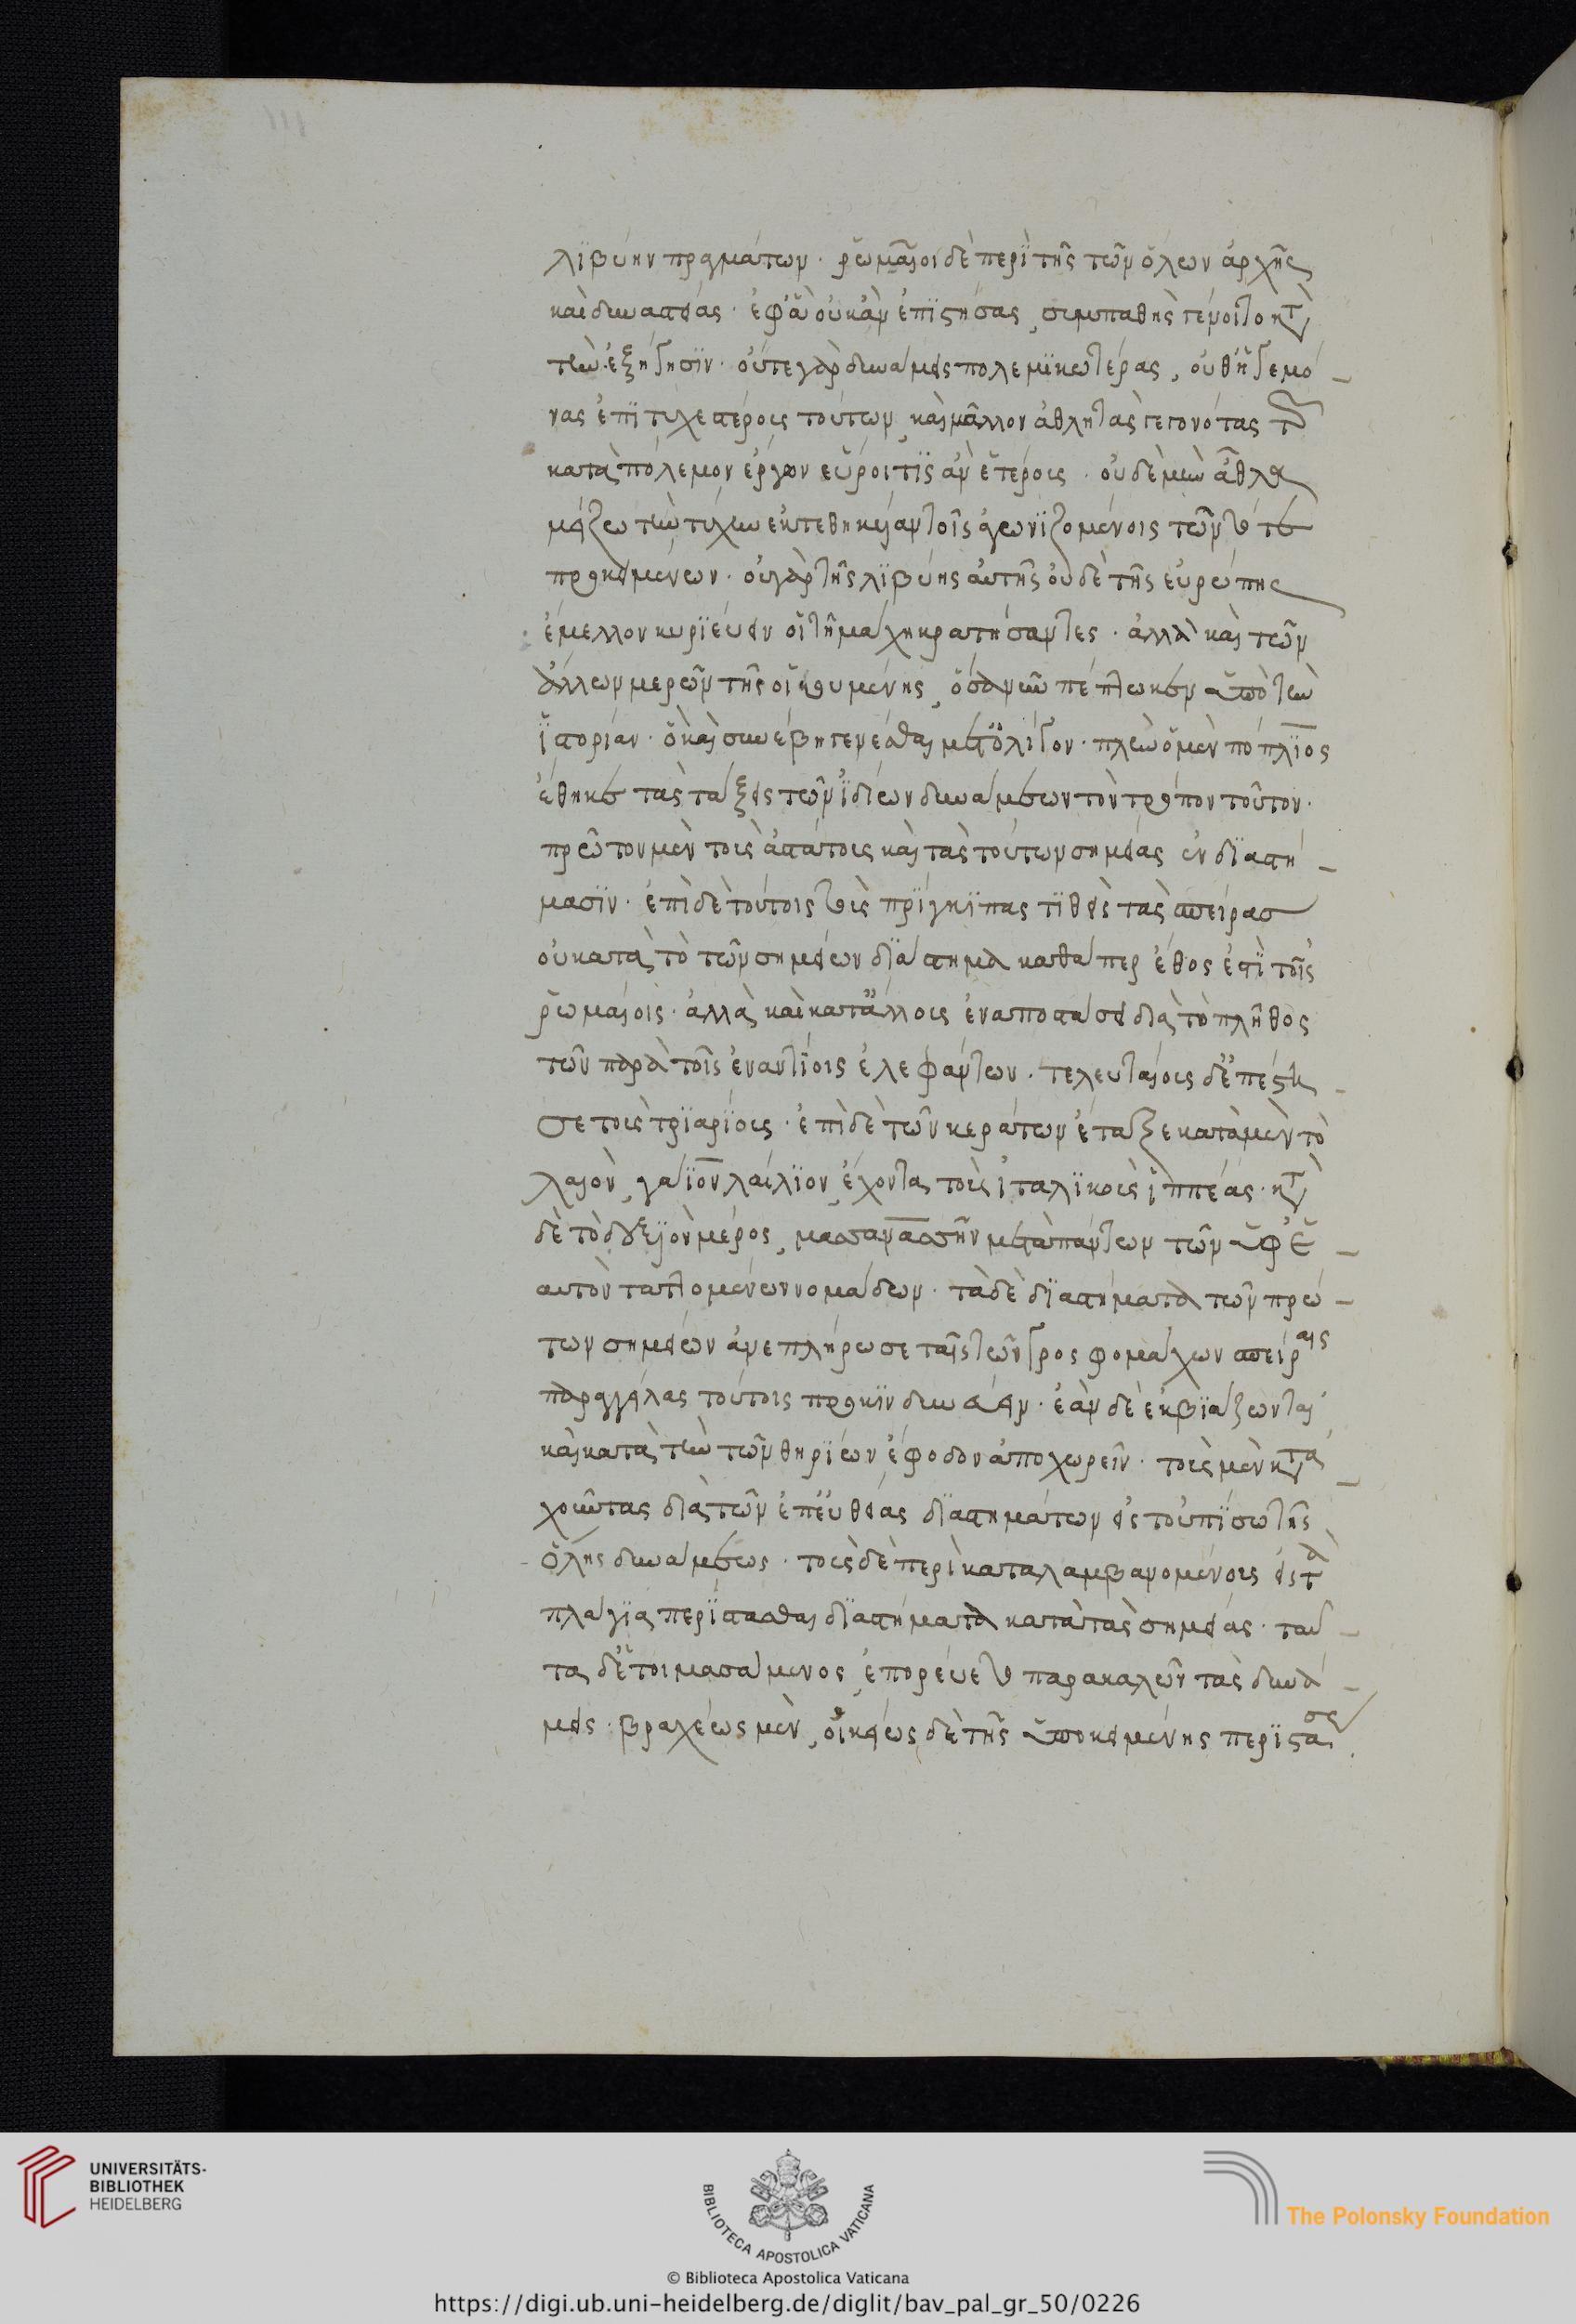 λϊβύην πραγμάτων· ῥωμαῖοι δὲ περὶ τῆς τῶν ὅλων ἀρχῆς
καὶ δυναστείας· ἐφ' ἃ οὐκ ἂν ἐπϊστήσας, συμπαθὴς γένοιτο κατὰ
τὴν ἐξήγησϊν· οὔτε γὰρ δυνάμεις πολεμϊκωτέρας, οὔθ' ἡγεμό-
νας ἐπϊτυχεστέρους τούτων, καὶ μᾶλλον ἀθλητὰς γεγονότας τῶν
κατὰ πόλεμον ἔργων εὕροι τϊς ἂν ἑτέρους· οὐδὲ μὴν ἆθλα
μείζω τὴν τύχην ἐκτεθηκυῖαν τοῖς ἀγωνϊζομένοις τῶν τότε
προκειμένων· οὐ γὰρ τῆς λϊβύης αὐτῆς οὐδὲ τῆς εὐρώπης
ἔμελλον κυρϊεύειν οἱ τῇ μάχῃ κρατήσαντες· ἀλλὰ καὶ τῶν
ἄλλων μερῶν τῆς οἰκουμένης, ὅσα νῦν πέπτωκεν ὑπὸ τὴν
ἱστορίαν· ὃ καὶ συνέβη γενέσθαι μετ' ὀλίγον· πλὴν ὁ μὲν πόπλϊος
ἔθηκε τὰς τάξεις τῶν ἰδίων δυνάμεων τὸν τρόπον τοῦτον·
πρῶτον μὲν τοὺς ἀστάτους καὶ τὰς τούτων σημείας ἐν δϊαστή-
μασϊν· ἐπὶ δὲ τούτοις τοὺς πρϊγκϊπας τϊθεὶς τὰς σπείρας
οὐ κατὰ τὸ τῶν σημείων δϊάστημα καθάπερ ἔθος ἐστὶ τοῖς
ῥωμαίοις· ἀλλὰ καὶ κατ' ἄλλους ἐν ἀποστάσει διὰ τὸ πλῆθος
τῶν παρὰ τοῖς ἐναντίοις ἐλεφάντων· τελευταίους δ' ἐπέστη-
σε τοὺς τρϊαρϊους· ἐπὶ δὲ τῶν κεράτων ἔταξε κατὰ μὲν τὸ
λαιὸν, γάϊον λαίλϊον, ἔχοντα τοὺς ἰταλϊκοὺς ἱππέας· κατὰ
δὲ τὸ δεξϊὸν μέρος, μασσανάσσην μετὰ πάντων τῶν ὑφ' ἑ-
αυτὸν ταττομένων νομάδων· τὰ δὲ δϊαστήματα τῶν πρώ-
των σημείων ἀνεπλήρωσε ταῖς τῶν γροσφομάχων σπείραις
παραγγείλας τούτοις προκϊνδυνεύειν· ἐὰν δὲ ἐκβϊάζωνται
καὶ κατὰ τὴν τῶν θηρϊων ἔφοδον ἀποχωρεῖν· τοὺς μὲν κατα-
χοῦντας διὰ τῶν ἐπ' εὐθείας δϊαστημάτων εἰς τοὐπϊσω τῆς
ὅλης δυνάμεως· τοὺς δὲ περὶκαταλαμβανομένους εἰς τὰ
πλάγϊα περϊίστασθαι δϊαστήματα κατὰ τὰς σημείας· ταῦ-
τα δ' ἑτοιμασάμενος, ἐπορεύετο παρακαλῶν τὰς δυνά-
μεις· βραχέως μὲν, οἰκείως δὲ τῆς ὑποκειμένης περϊστάσεως
UNIVERSITÄTS-
BIBLIOTHEK
HEIDELBERG
BIBLIOTECA APOSTOLICA VATICANA
The Polonsky Foundation
© Biblioteca Apostolica Vaticana
https://digi.ub.uni-heidelberg.de/diglit/bav_pal_gr_50/0226